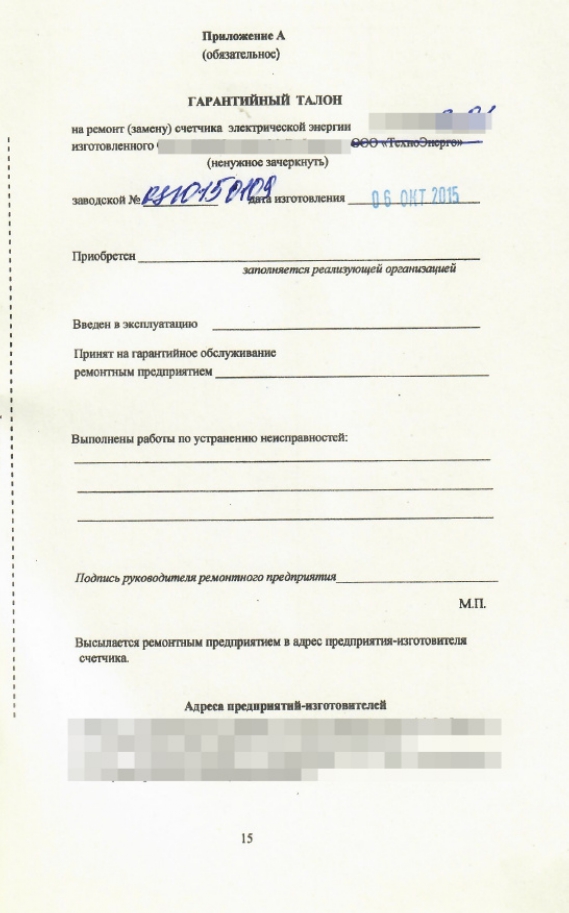 Приложение А
(обязательное)
ГАРАНТИЙНЫЙ ТАЛОН
на ремонт (замену) счетчика электрической энергии
изготовленного ООО «ТехноЭнерго»
(ненужное зачеркнуть)
заводской № дата изготовления 06 ОКТ 2015
Приобретен
заполняется реализующей организацией
Введен в эксплуатацию
Принят на гарантийное обслуживание
ремонтным предприятием
Выполнены работы по устранению неисправностей:
Подпись руководителя ремонтного предприятия
М.П.
Высылается ремонтным предприятием в адрес предприятия-изготовителя
счетчика.
Адреса предприятий-изготовителей
15